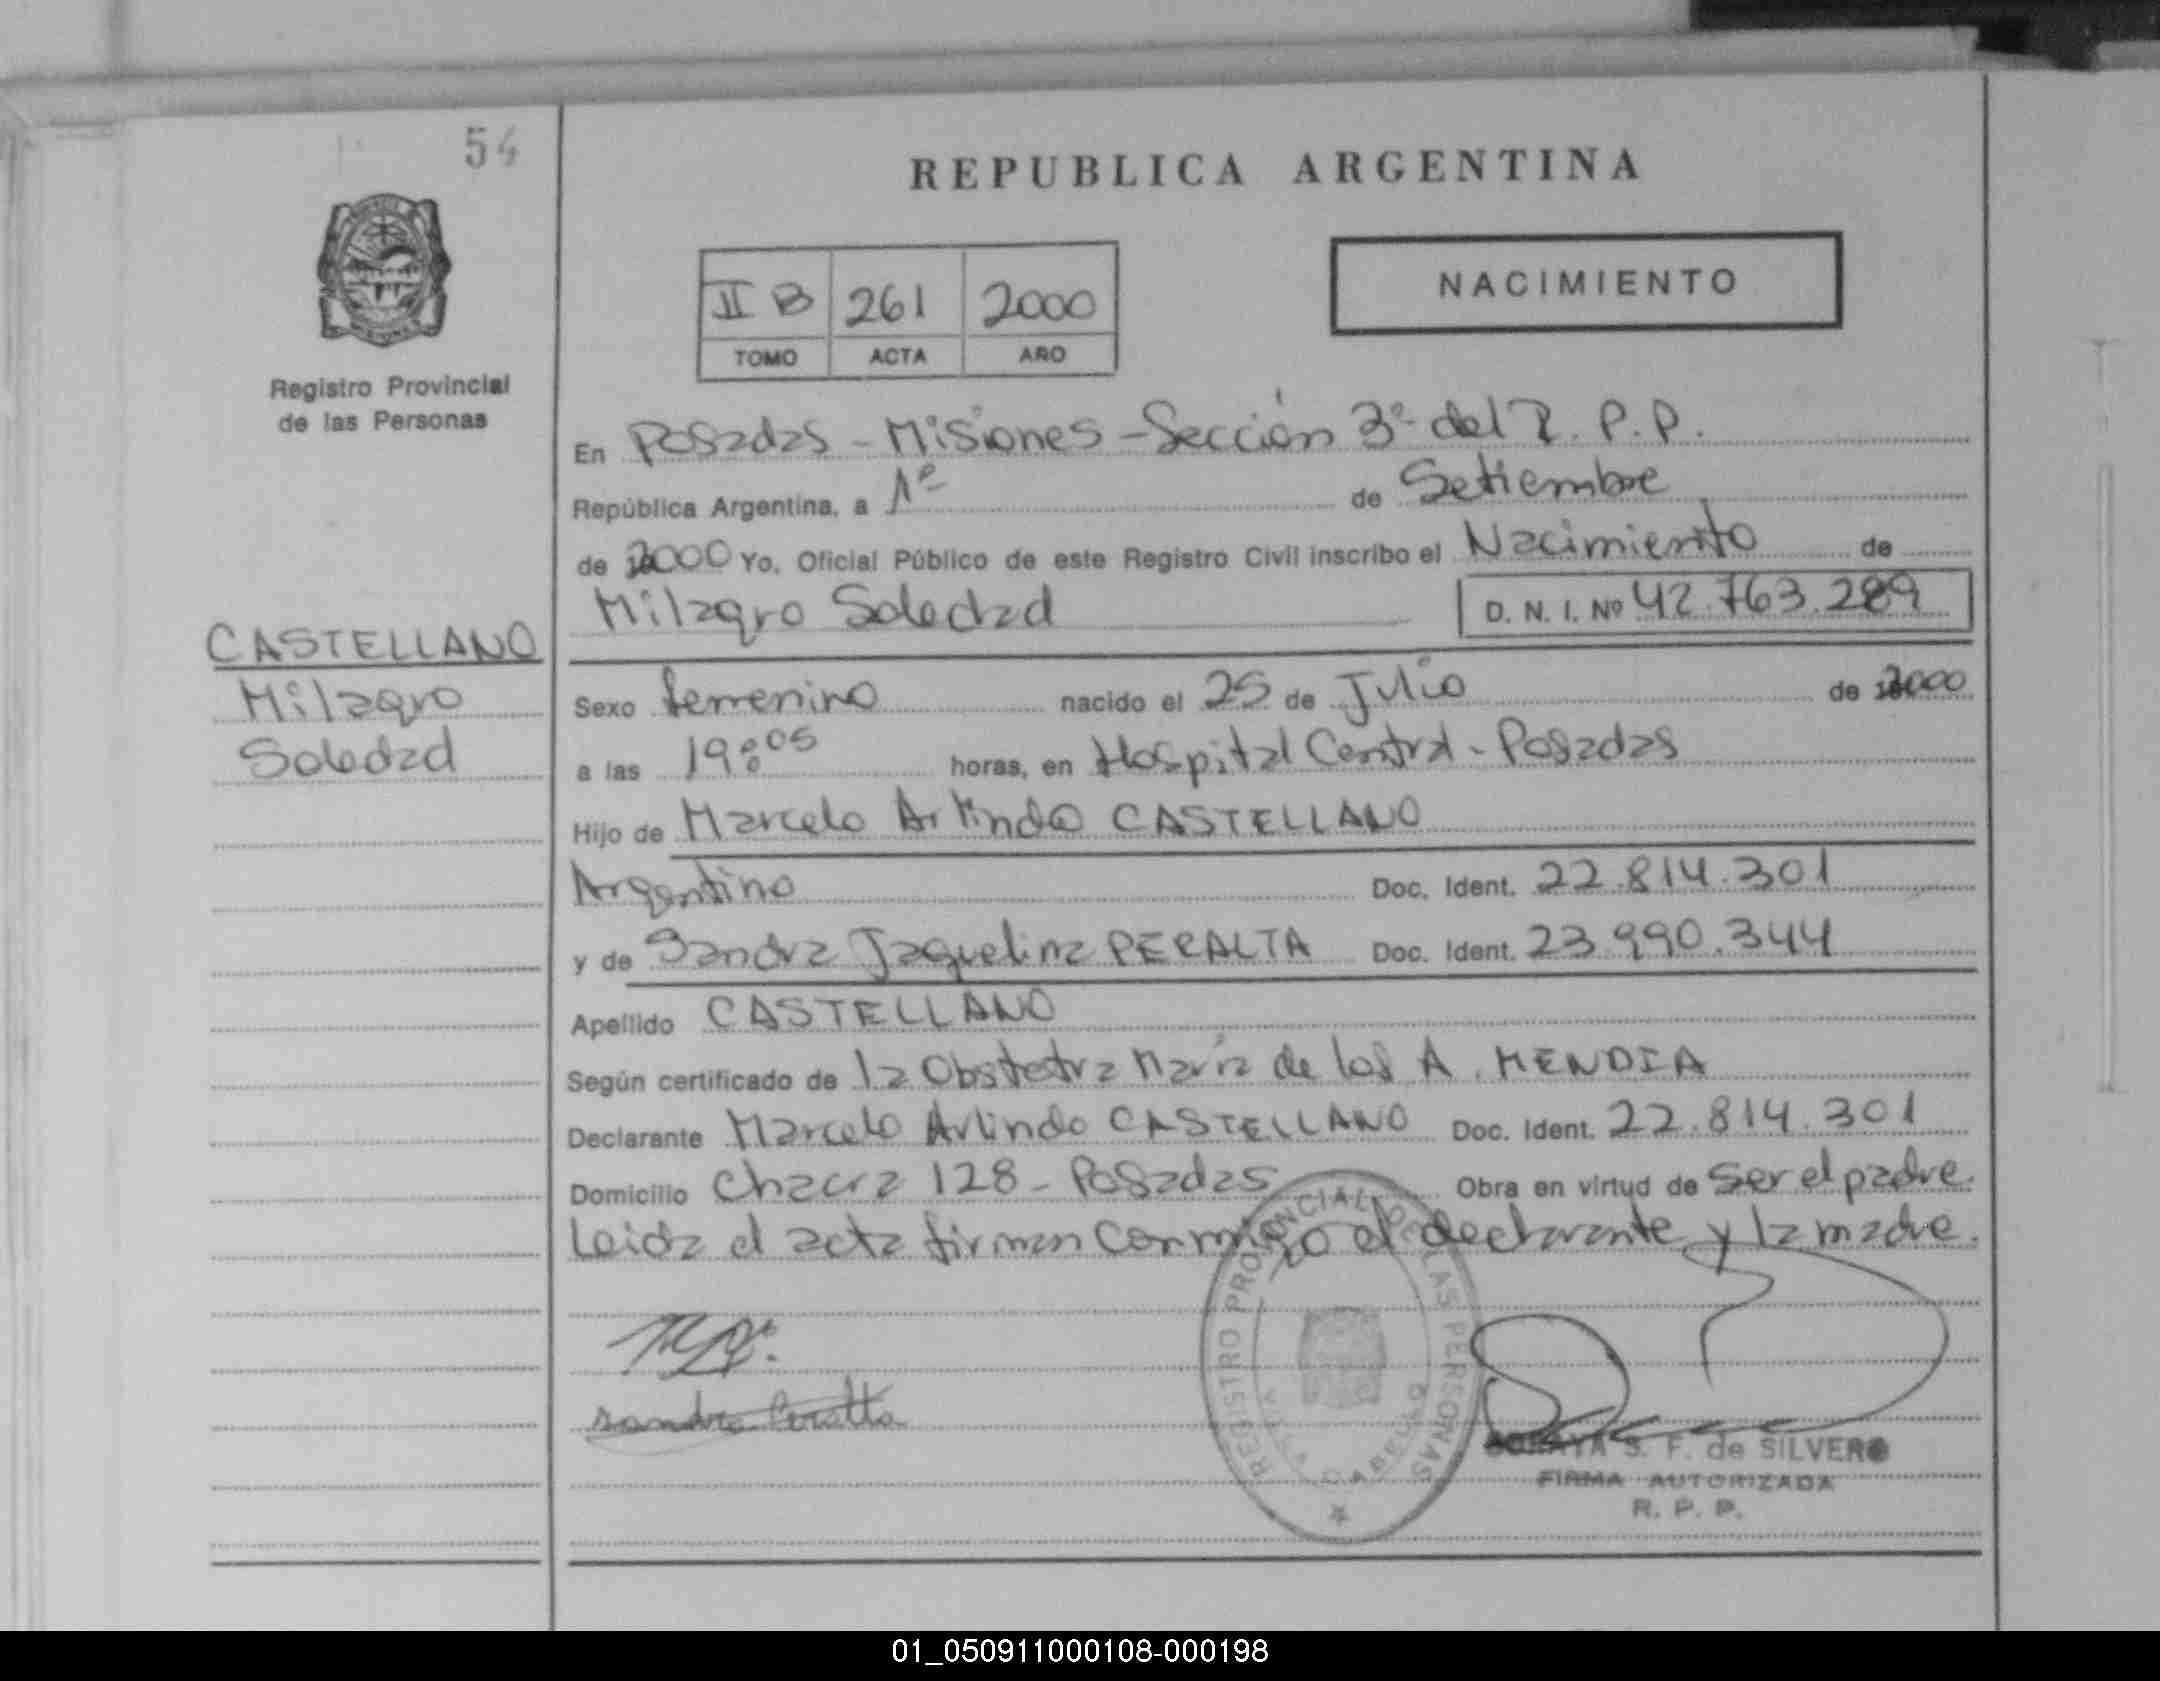 54
REPUBLICA ARGENTINA
II B 261 2000
TOMO ACTA AÑO
NACIMIENTO
Registro Provincial
de las Personas
En Posadas - Misiones - Sección 3º del R. P. P.
República Argentina, a 1º de Setiembre
de 2000 Yo, Oficial Público de este Registro Civil inscribo el Nacimiento de
Milagro Soledad D. N. I. Nº 42.763.289
CASTELLANO
Milagro
Soledad
Sexo femenino nacido el 25 de Julio de 2000
a las 19:05 horas, en Hospital Central - Posadas
Hijo de Marcelo Arlindo CASTELLANO
Argentino Doc. Ident. 22.814.301
y de Sandra Jaquelina PERALTA Doc. Ident. 23.990.344
Apellido CASTELLANO
Según certificado de la Obstetra María de los A. MENDIA
Declarante Marcelo Arlindo CASTELLANO Doc. Ident. 22.814.301
Domicilio Chacra 128 - Posadas Obra en virtud de ser el padre.
Leida el acta firman conmigo el declarante y la madre.
Sandra Peralta
REGISTRO PROVINCIAL DE LAS PERSONAS
VILLA CABELLO
SORAYA S. F. de SILVERO
FIRMA AUTORIZADA
R. P. P.
01_050911000108-000198